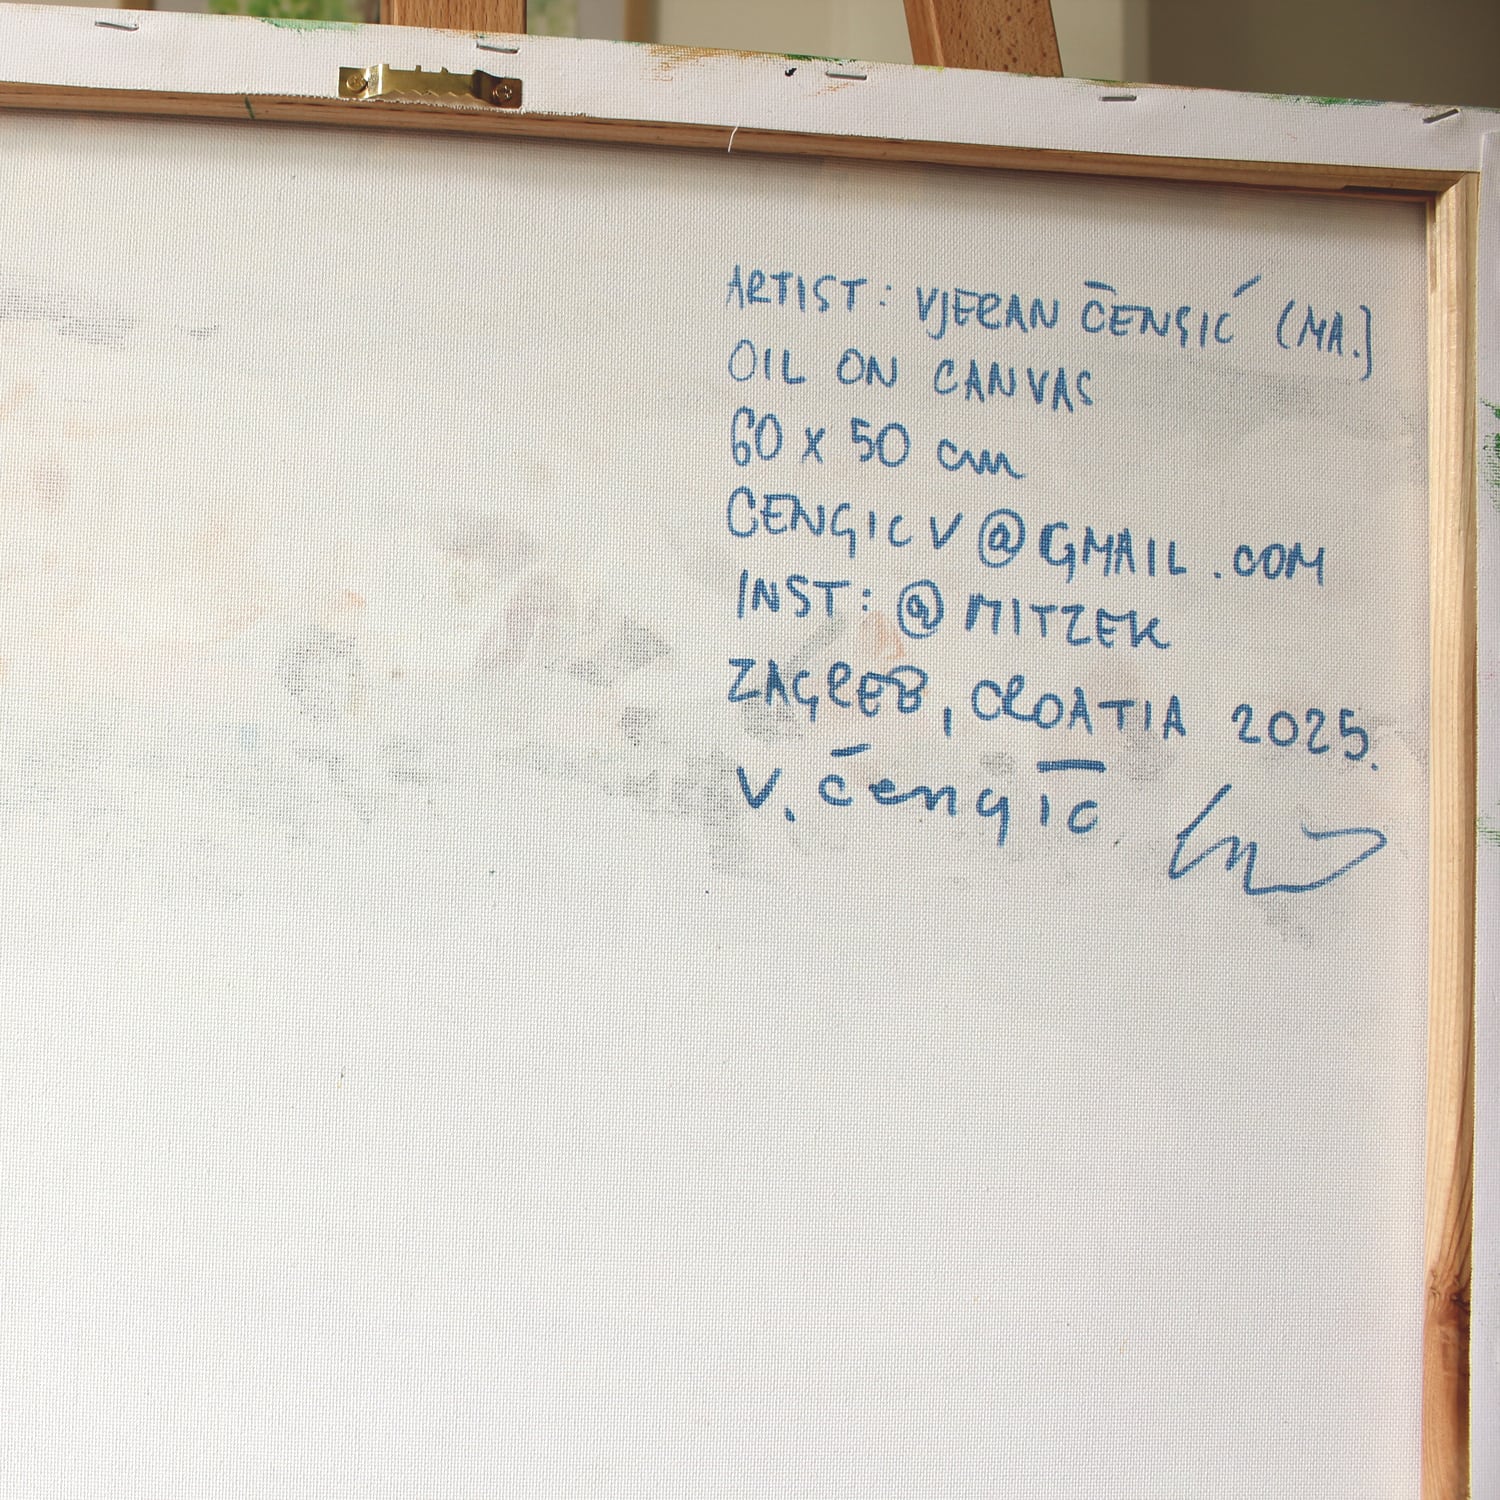 ARTIST: VJERAN ČENGIĆ (MA.)
OIL ON CANVAS
60 x 50 cm
CENGICV@GMAIL.COM
INST: @MITZEK
ZAGREB, CROATIA 2025.
V. čengić